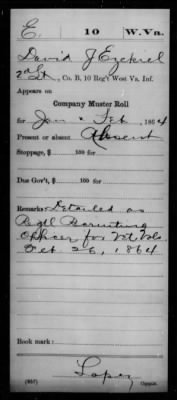 E. 10 W.Va.
David J Ezekiel
2d Lt, Co. B, 10 Reg't West Va. Inf.
Appears on
Company Muster Roll
for Jan & Feb, 1864
Present or absent Absent
Stoppage, $ 100 for
Due Gov't, $ 100 for
Remarks: Detailed as
Regtl Recruiting
Officer for Vet Vols
Feb. 26, 1864
Book mark:
Lopez
(857) Copyist.